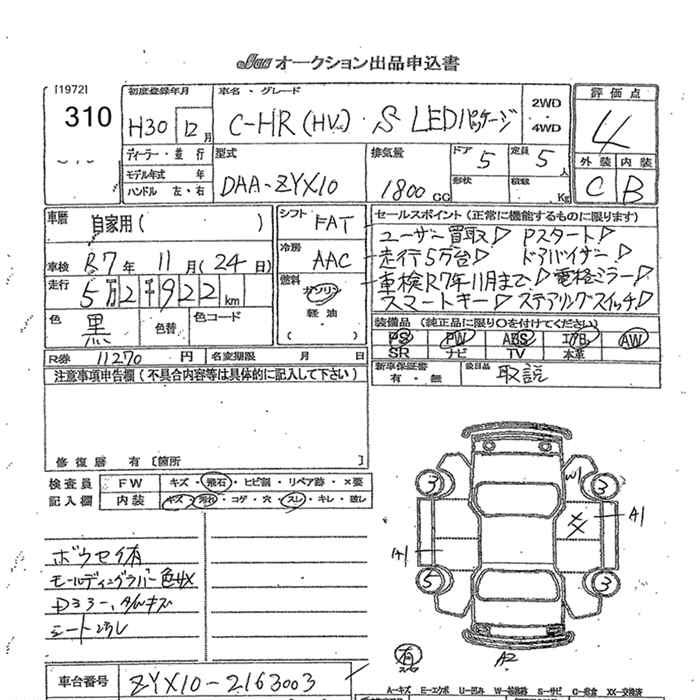 Jas オークション出品申込書
[1972]
310
初度登録年月
H30 12月
車名・グレード
C-HR(HV)・S LEDパッケージ
2WD
4WD
評価点
4
外装 内装
C B
ディーラー・並行
モデル年式 年
ハンドル 左・右
型式
DAA-ZYX10
排気量
1800 CC
ドア 5
形状
定員 5人
積載 Kg
車歴
自家用( )
車検 R7年 11月(24日)
走行 5万2千922km
色 黒 色替 色コード
R券 11270円 名変期限 月 日
シフト FAT
冷房 AAC
燃料
ガソリン
軽油
( )
セールスポイント(正常に機能するものに限ります)
ユーザー買取▷ Pスタート▷
走行5万台▷ ドアバイザー▷
車検R7年11月まで▷ 電格ミラー▷
スマートキー▷ ステアリングスイッチ▷
装備品(純正品に限り○を付けてください)
PS PW ABS エアB AW
SR ナビ TV 本革
新車保証書
有・無
取説
注意事項申告欄(不具合内容等は具体的に記入して下さい)
修復歴 有〔箇所 〕
検査員
記入欄
FW キズ・飛石・ヒビ割・リペア跡・X要
内装 キズ・汚れ・コゲ・穴・スレ・キレ・破レ
ボウセイ有
シート汚レ
3 W1 3
XX A1
A1
5 3
有 A2
車台番号 ZYX10-2163003
A-キズ E-エクボ U-凹み W-補修跡 S-サビ C-腐食 XX-交換済